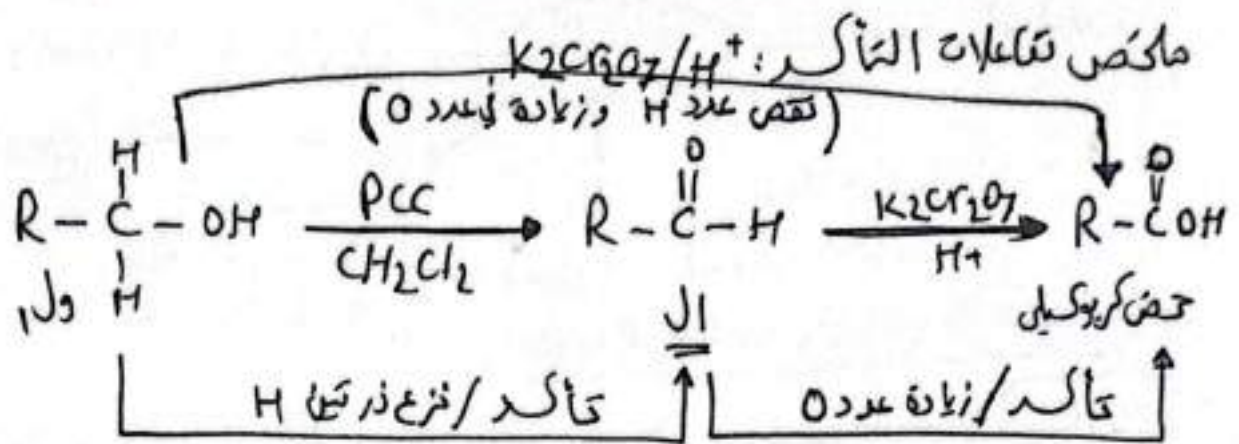 ملخص تفاعلات التأكسد: K2Cr2O7/H+
(نقص عدد H وزيادة في عدد O)
H O O
R - C - OH PCC R - C - H K2Cr2O7 R - C OH
CH2Cl2 H+
ول1 H ال حمض كربوكسيلي
تأكسد/نزع ذرتين H تأكسد/زيادة عدد O